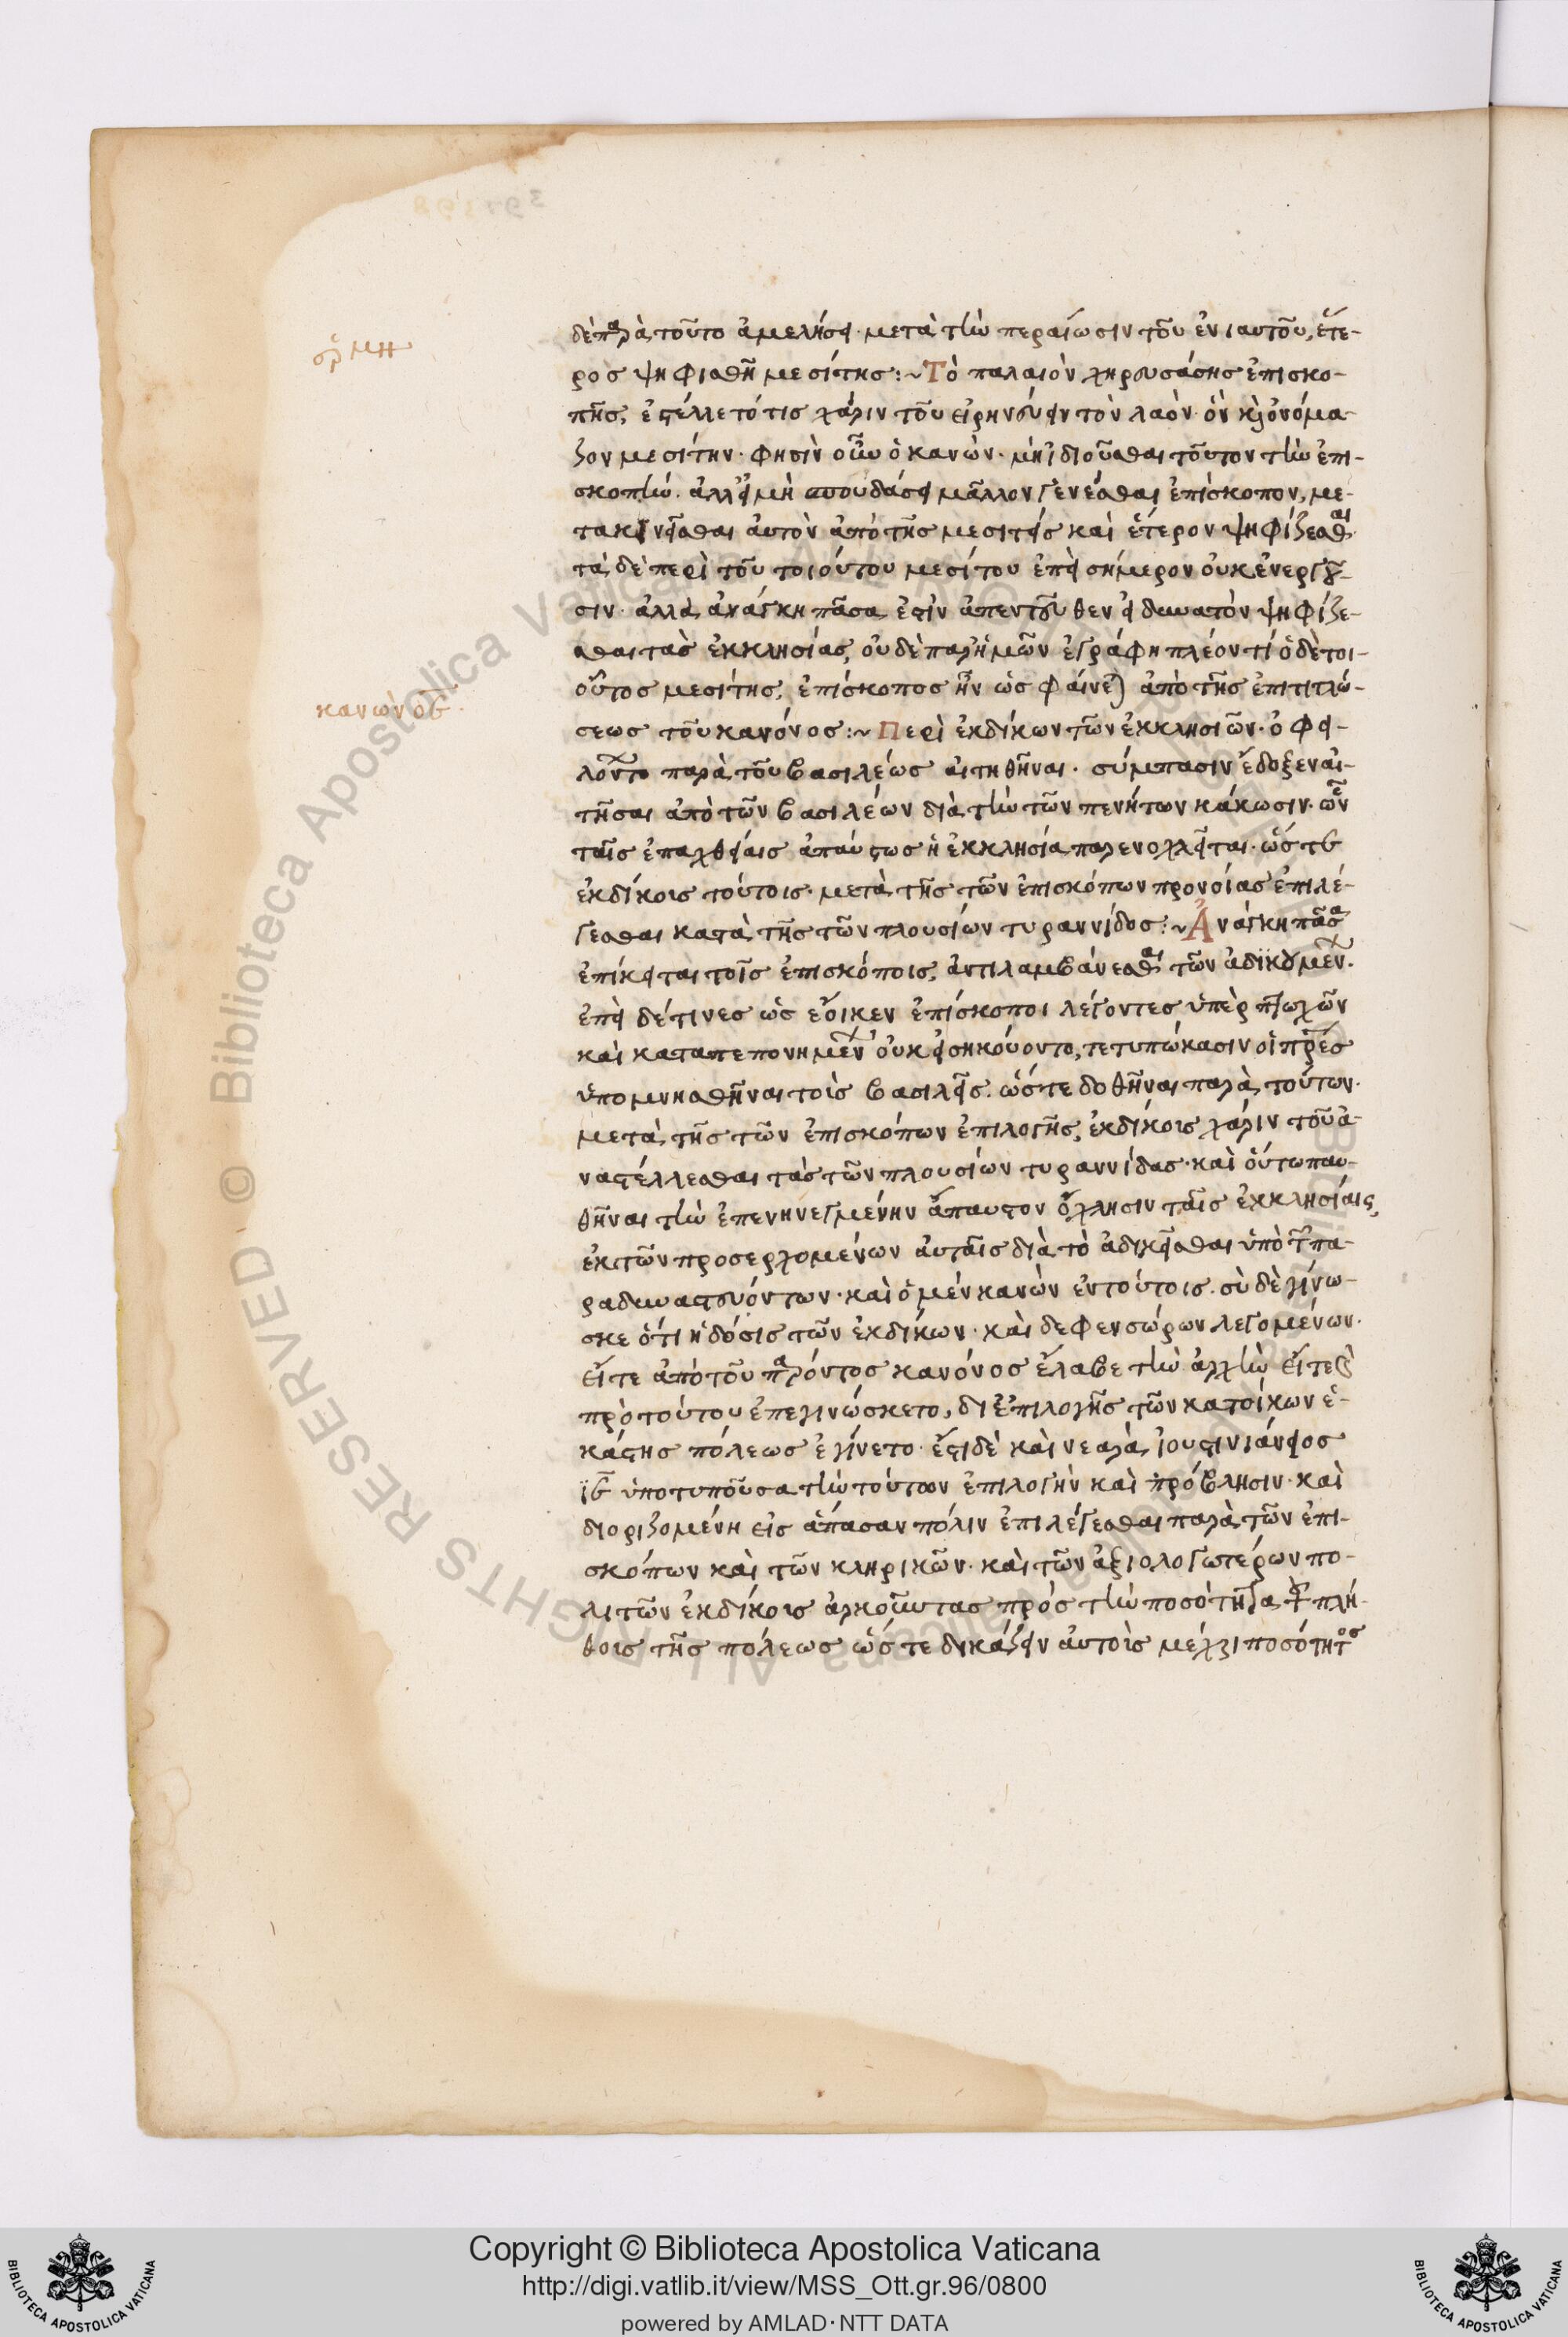 ἑρμη
δὲ παρὰ τοῦτο ἀμελήσει· μετὰ τὴν περαίωσιν τοῦ ἐνιαυτοῦ, ἕτε-
ρος ψηφισθῆ μεσίτης :~ Τὸ παλαιὸν χηρευσάσης ἐπισκο-
πῆς, ἐστέλλετό τις χάριν τοῦ εἰρηνεύειν τὸν λαὸν· ὃν καὶ ὀνόμα-
ζον μεσίτην· φησὶν οὖν ὁ κανὼν· μὴ ἰδιοῦσθαι τοῦτον τὴν ἐπι-
σκοπὴν. ἀλλ' εἰ μὴ σπουδάσει μᾶλλον γενέσθαι ἐπίσκοπον, με-
τακινεῖσθαι αὐτὸν ἀπὸ τῆς μεσιτείας καὶ ἕτερον ψηφίζεσθαι.
τὰ δὲ περὶ τοῦ τοιούτου μεσίτου ἐπεὶ σήμερον οὐκ ἐνεργοῦ-
σιν· ἀλλὰ ἀνάγκη πᾶσα ἐστὶν ἀπεντεῦθεν εἰ δυνατὸν ψηφίζε-
σθαι τὰς ἐκκλησίας, οὐδὲ παρ' ἡμῶν ἐγράφη πλέον τί ὁ δὲ τοι-
οῦτος μεσίτης, ἐπίσκοπος ἦν ὡς φαίνεται ἀπὸ τῆς ἐπιτιτλώ-
κανών οε.
σεως τοῦ κανόνος :~ Περὶ ἐκδίκων τῶν ἐκκλησιῶν· ὀφει-
λόντων παρὰ τοῦ βασιλέως αἰτηθῆναι· σύμπασιν ἔδοξεν αἰ-
τῆσαι ἀπὸ τῶν βασιλέων διὰ τὴν τῶν πενήτων κάκωσιν· ὧν ἐν
ταῖς ἐπαχθείαις ἀπαύστως ἡ ἐκκλησία παρενοχλεῖται· ὥστε
ἐκδίκους τούτοις· μετὰ τῆς τῶν ἐπισκόπων προνοίας ἐπιλέ-
γεσθαι κατὰ τῆς τῶν πλουσίων τυραννίδος :~ Ἀνάγκη πᾶσα
ἐπίκειται τοῖς ἐπισκόποις, ἀντιλαμβάνεσθαι τῶν ἀδικουμένων.
ἐπεὶ δέ τινες ὡς ἔοικεν ἐπίσκοποι λέγοντες ὑπὲρ πτωχῶν
καὶ καταπεπονημένων οὐκ εἰσηκούοντο, τετυπώκασιν οἱ πατέρες
ὑπομνησθῆναι τοὺς βασιλεῖς. ὥστε δοθῆναι παρὰ τούτων·
μετὰ τῆς τῶν ἐπισκόπων ἐπιλογῆς, ἐκδίκους χάριν τοῦ ἀ-
ναστέλλεσθαι τὰς τῶν πλουσίων τυραννίδας· καὶ οὕτω παυ-
θῆναι τὴν ἐπενηνεγμένην ἄπαυστον ὄχλησιν ταῖς ἐκκλησίαις,
ἐκ τῶν προσερχομένων αὐταῖς διὰ τὸ ἀδικεῖσθαι ὑπὸ τῶν πα-
ραδυναστευόντων· καὶ ὁ μὲν κανὼν ἐν τούτοις. σὺ δὲ γίνω-
σκε ὅτι ἡ δόσις τῶν ἐκδίκων· καὶ δεφενσώρων λεγομένων·
εἴτε ἀπὸ τοῦ παρόντος κανόνος ἔλαβε τὴν ἀρχὴν εἴτε καὶ
πρὸ τούτου ἐπεγινώσκετο, δι' ἐπιλογῆς τῶν κατοίκων ἑ-
κάστης πόλεως ἐγίνετο· ἔστι δὲ καὶ νεαρὰ ἰουστινιάνειος
ιε ὑποτυποῦσα τὴν τούτων ἐπιλογὴν καὶ πρόβλησιν· καὶ
διοριζομένη εἰς ἅπασαν πόλιν ἐπιλέγεσθαι παρὰ τῶν ἐπι-
σκόπων καὶ τῶν κληρικῶν· καὶ τῶν ἀξιολογωτέρων πο-
λιτῶν ἐκδίκους ἀρκοῦντας πρὸς τὴν ποσότητα τοῦ πλή-
θους τῆς πόλεως ὥστε δικάζειν αὐτοὺς μέχρι ποσότητος
Copyright © Biblioteca Apostolica Vaticana
http://digi.vatlib.it/view/MSS_Ott.gr.96/0800
powered by AMLAD·NTT DATA
BIBLIOTECA APOSTOLICA VATICANA
BIBLIOTECA APOSTOLICA VATICANA